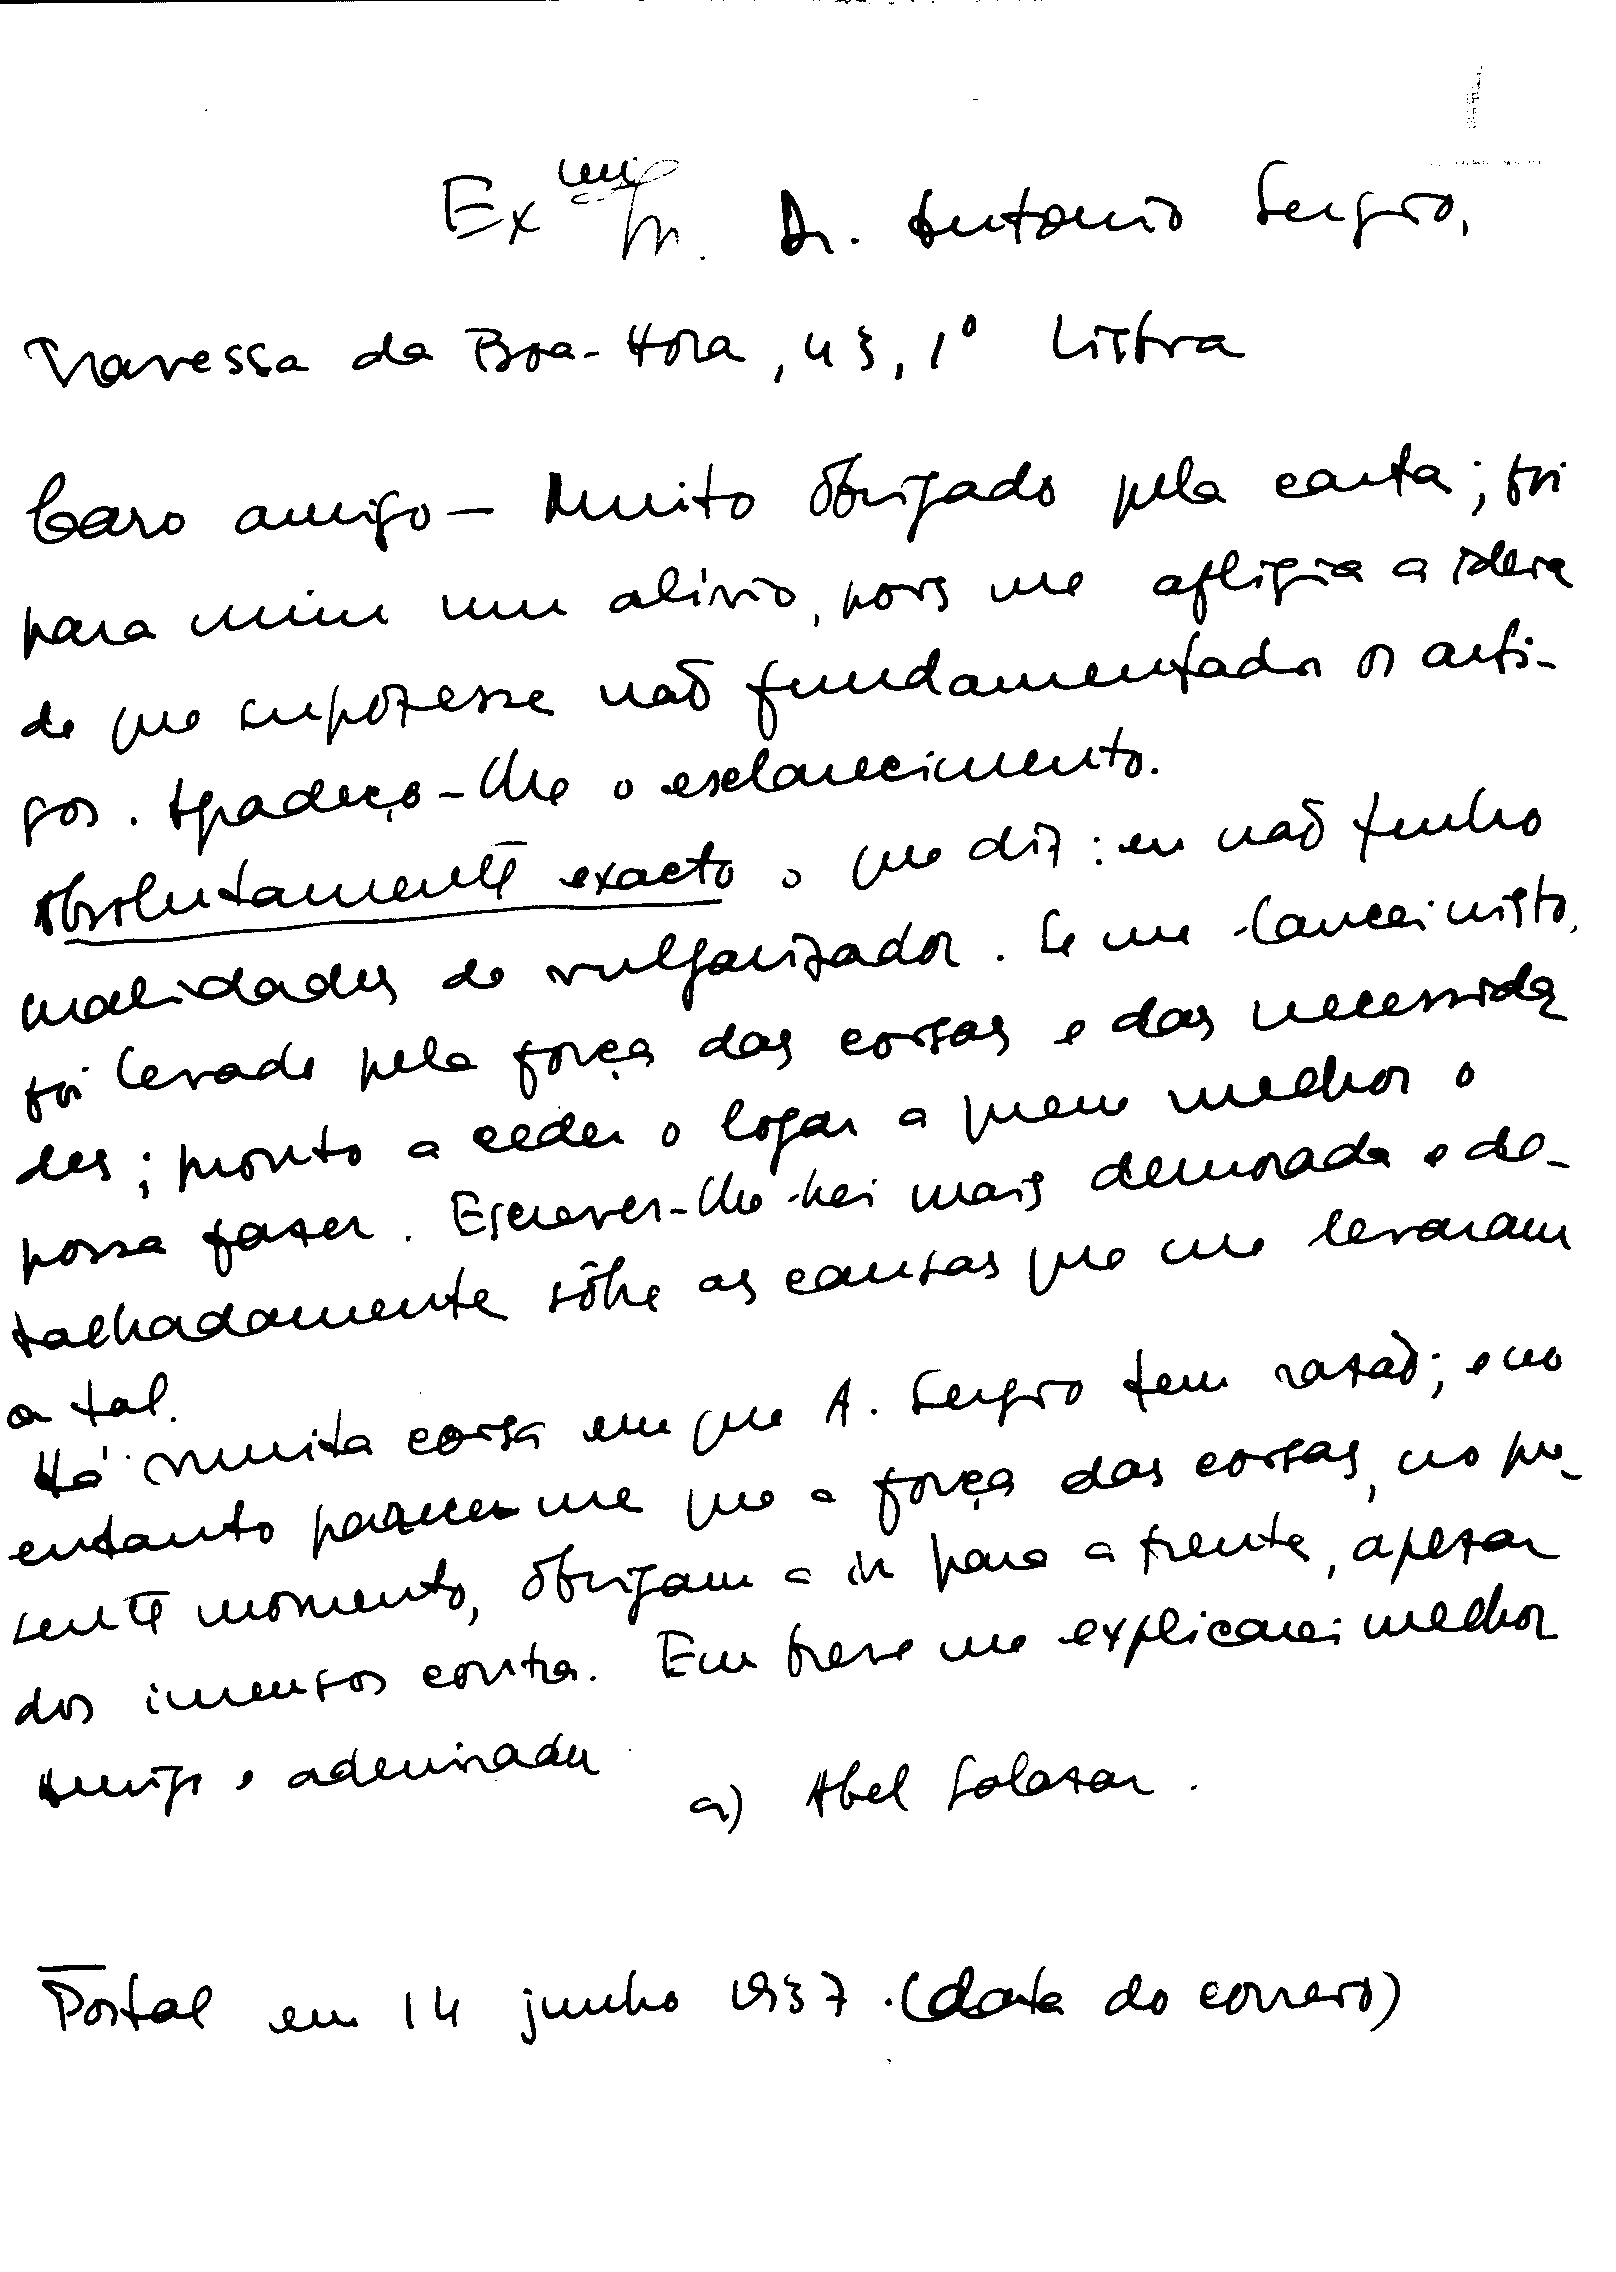 Exmo Sr. Dr. Antonio Sergio,
Travessa da Boa-Hora, 43, 1º Lisboa
Caro amigo — Muito obrigado pela carta; foi
para mim um alívio, pois me afligia a ideia
de que supozesse não fundamentados os arti-
gos. Agradeço-lhe o esclarecimento.
Absolutamente exacto o que diz: eu não tenho
qualidades de vulgarizador. Se me lancei nisto,
foi levado pela força das coisas e das necessida
des; pronto a ceder o logar a quem melhor o
possa fazer. Escrever-lhe-hei mais demorada e de-
talhadamente sôbre as causas que me levaram
a tal.
Há muita coisa em que A. Sergio tem razão; e no
entanto parece-me que a força das coisas, no pre-
sente momento, obrigam a ir para a frente, apezar
dos imensos contra. Em breve me explicarei melhor
Amigo e admirador
a) Abel Salazar.
Postal em 14 junho 1937. (data do correio)